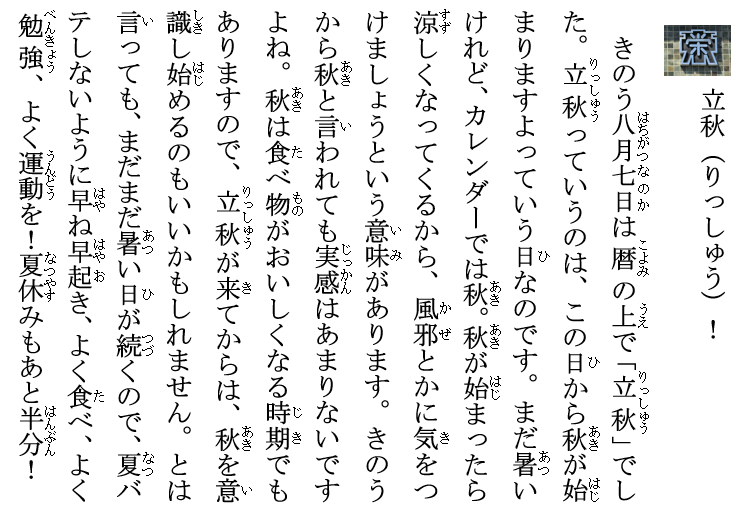 栄
立秋（りっしゅう）！
きのう八月七日は暦の上で「立秋」でし
た。立秋っていうのは、この日から秋が始
まりますよっていう日なのです。まだ暑い
けれど、カレンダーでは秋。秋が始まったら
涼しくなってくるから、風邪とかに気をつ
けましょうという意味があります。きのう
から秋と言われても実感はあまりないです
よね。秋は食べ物がおいしくなる時期でも
ありますので、立秋が来てからは、秋を意
識し始めるのもいいかもしれません。とは
言っても、まだまだ暑い日が続くので、夏バ
テしないように早ね早起き、よく食べ、よく
勉強、よく運動を！夏休みもあと半分！